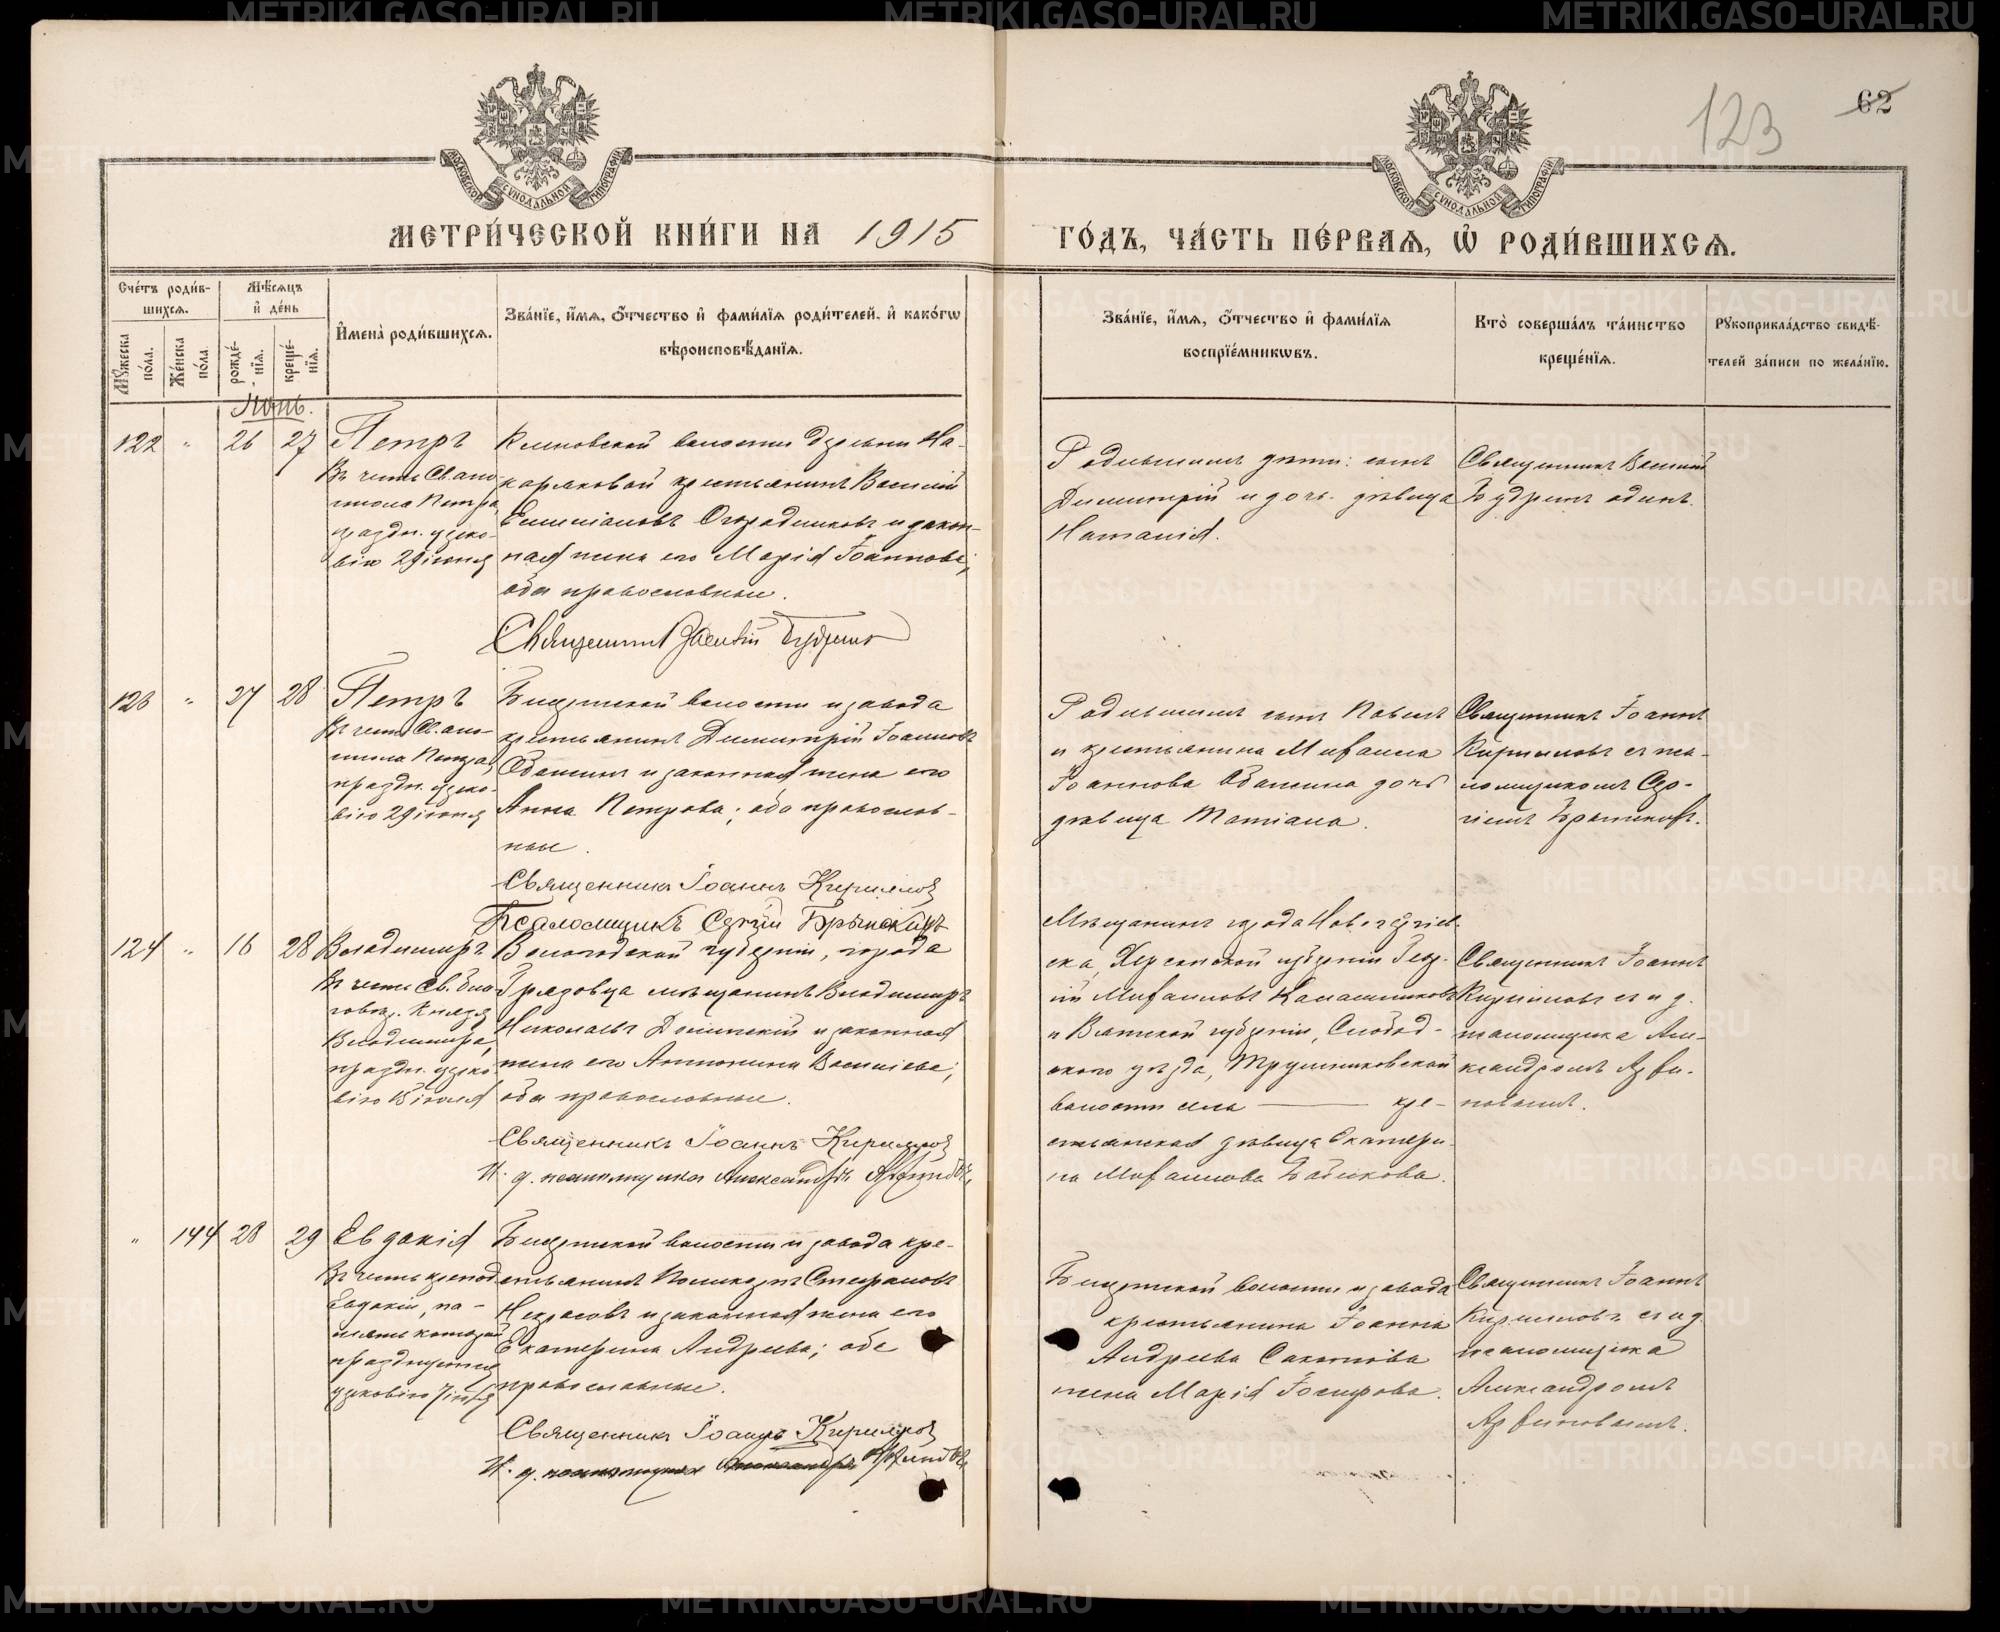 123
62
МОСКОВСКОЙ СѴНОДАЛЬНОЙ ТИПОГРАФІИ
МОСКОВСКОЙ СѴНОДАЛЬНОЙ ТИПОГРАФІИ
МЕТРИ́ЧЕСКОЙ КНИ́ГИ НА 1915 ГО́ДЪ, ЧА́СТЬ ПЕ́РВАѦ, Ѽ РОДИ́ВШИХСѦ.
Сче́тъ роди́вшихсѧ.
Мꙋ́жеска по́ла.
Же́нска по́ла.
Мѣ́сѧцъ и҆ де́нь
рожде́нїѧ.
креще́нїѧ.
И҆мена̀ роди́вшихсѧ.
Зва́нїе, и҆́мѧ, ѻ҆́тчество и҆ фами́лїѧ роди́телей, и҆ како́гѡ вѣроисповѣ́данїѧ.
Зва́нїе, и҆́мѧ, ѻ҆́тчество и҆ фами́лїѧ воспрїе́мникѡвъ.
Кто̀ соверша́лъ та́инство креще́нїѧ.
Рꙋкоприкла́дство свидѣ́телей за́писи по жела́нїю.
Іюнь.
122 " 26 27 Петръ
Въ честь Св. апо-
стола Петра,
праздн. церко-
вію 29 іюня
Кленовской волости деревни
крестьянинъ Василій
Емиліановъ Огородниковъ и закон-
ная жена его Марія Іоаннова;
оба православные.
Священникъ Василій Будринъ
Родившихъ дѣти: сынъ
Димитрій и дочь дѣвица
Наталія.
Священникъ Василій
Будринъ одинъ.
123 " 27 28 Петръ
Въ честь Св. апо-
стола Петра,
праздн. церко-
вію 29 іюня
Бисертской волости и завода
крестьянинъ Димитрій Іоанновъ
Обатинъ и законная жена его
Анна Петрова; оба православ-
ные.
Священникъ Іоаннъ Кирилловъ
Псаломщикъ Сергій
Родившихъ сынъ Павелъ
и крестьянина Михаила
Іоаннова дочь
дѣвица Татіана.
Священникъ Іоаннъ
Кирилловъ съ пса-
ломщикомъ Сер-
гіемъ
124 " 16 28 Владимиръ
Въ честь Св. бла-
говѣр. Князя
Владимира,
праздн. церко-
вію 15 іюля
Вологодской губерніи, города
Грязовца мѣщанинъ Владимиръ
Николаевъ и законная
жена его Антонина Васильева;
оба православные.
Священникъ Іоаннъ Кирилловъ
И. д. псаломщика Александръ Арфиновъ
Мѣщанинъ города Новогеоргіев-
ска, Херсонской губерніи Геор-
гій Михаиловъ Калашниковъ
и Вятской губерніи, Слобод-
ского уѣзда, Трушниковской
волости села —— кре-
стьянская дѣвица Екатери-
на Михаилова Бабикова.
Священникъ Іоаннъ
Кирилловъ съ и. д.
псаломщика Але-
ксандромъ Арфи-
новымъ.
" 144 28 29 Евдокія
Въ честь препод.
Евдокіи, па-
мять которой
празднуется
церковію 7 іюля
Бисертской волости и завода кре-
стьянинъ Поликарпъ Стефановъ
Некрасовъ и законная жена его
Екатерина Андреева; оба
православные.
Священникъ Іоаннъ Кирилловъ
И. д. псаломщика Александръ Арфиновъ
Бисертской волости и завода
крестьянина Іоанна
Андреева
жена Марія Іосифова.
Священникъ Іоаннъ
Кирилловъ съ и. д.
псаломщика
Александромъ
Арфиновымъ.
METRIKI.GASO-URAL.RU